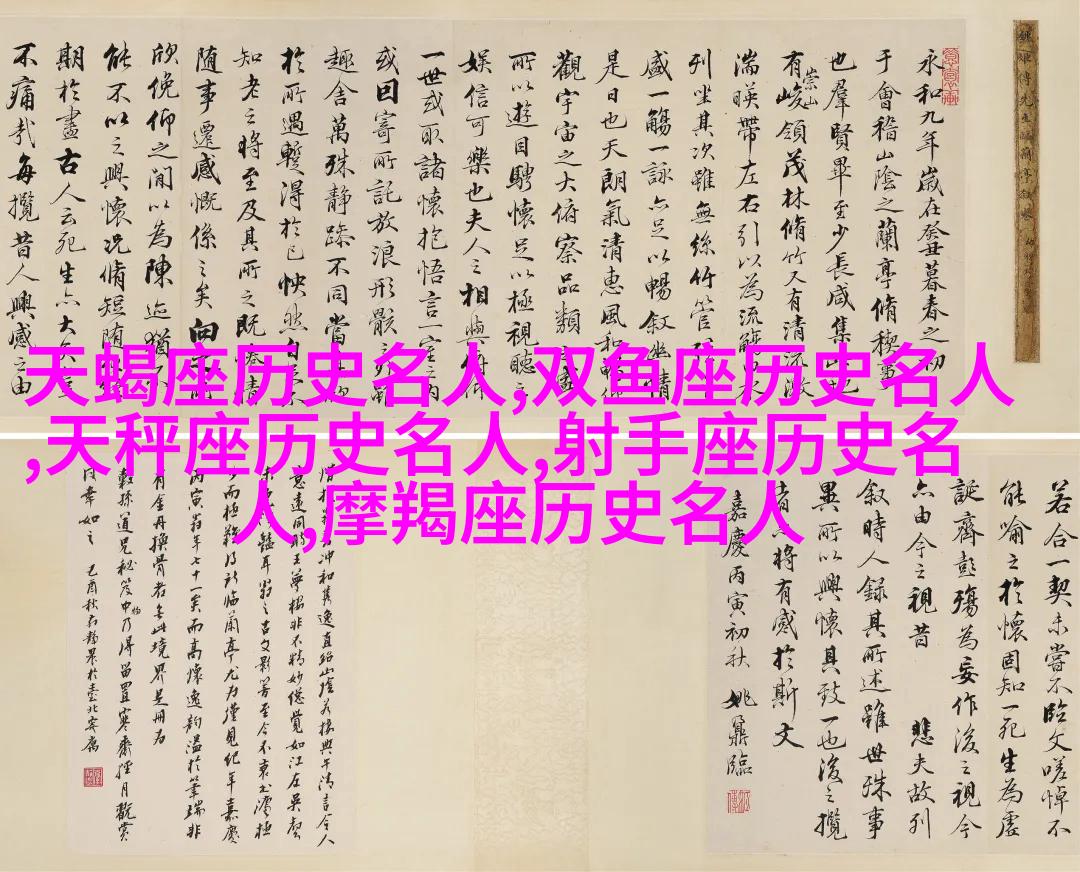 天蝎座历史名人,双鱼座历史名人
,天秤座历史名人,射手座历史名
人,摩羯座历史名人
永和九年歲在癸丑暮春之初
于會稽山陰之蘭亭脩稧事
也羣賢畢至少長咸集
有崇山峻領茂林脩竹又有清流激
湍暎帶左右引以為流觴
列坐其次雖無絲竹管
盛一觴一詠亦足以暢叙幽情
是日也天朗氣清惠風和暢
觀宇宙之大俯察品類
所以遊目騁懷足以極視聽之
娛信可樂也夫人之相與俯仰
一世或取諸懷抱悟言一室之內
或因寄所託放浪形骸之外雖
趣舍萬殊靜躁不同當
於所遇蹔得於己怏然自足不
知老之將至及其所之既惓情
隨事遷感慨係之矣向
欣俛仰之閒以為陳迹猶不
能不以之興懷況脩短随
期於盡古人云死生亦大矣
不痛哉每攬昔人興感之由
若合一契未嘗不臨文嗟悼不
能喻之於懷固知一死生為虛
誕齊彭殤為妄作後之視今
亦由今之視昔 悲夫故列
叙時人錄其所述雖世殊事
異所以興懷其致一也後之攬
者亦將有感於斯文
嘉慶丙寅初秋 姚鼐臨
而極難得 此臨蘭亭尤為僅見紀年嘉慶
丙寅 年七十一矣而高懷逸韵溢於筆端非
有金丹換骨者無此境界是冊為
穀孫道兄秘笈中物乃得留置寒齋經月觀賞
何幸如之 己酉秋 靜農於臺北寄廬